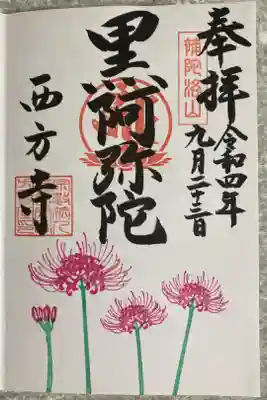 奉拝
令和四年
九月二十三日
補陀洛山
黒阿弥陀
西方寺